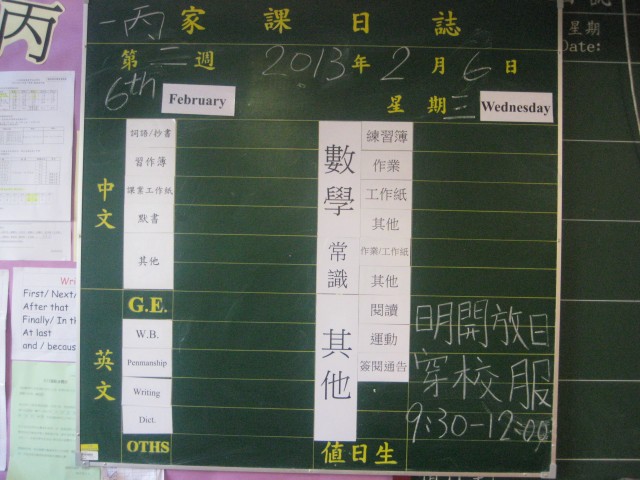 丙
一丙家課日誌
第二週 2013年2月6日
6th February 星期三 Wednesday
中文
詞語/抄書
習作簿
課業工作紙
默書
其他
英文
G.E.
W.B.
Penmanship
Writing
Dict.
OTHS
數學
練習簿
作業
工作紙
其他
常識
作業/工作紙
其他
其他
閱讀
運動
簽閱通告
值日生
日月開放日
穿校服
9:30-12:00
星期
Date:
First/ Next/
After that
Finally/ In th
At last
and / becaus